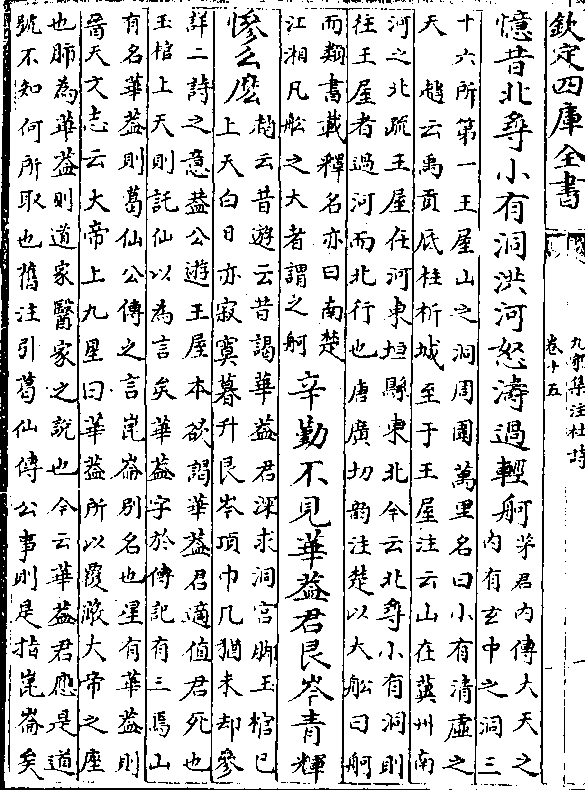 欽定四庫全書
九家集注杜詩
卷十五
憶昔北尋小有洞洪河怒濤過輕舸
茅君内傳大天之
内有玄中之洞三
十六所第一王屋山之洞周圍萬里名曰小有清虛之
天　趙云禹貢底柱析城至于王屋注云山在冀州南
河之北疏王屋在河東垣縣東北今云北尋小有洞則
往王屋者過河而北行也唐廣切韵注楚以大船曰舸
而類書載釋名亦曰南楚
江湘凡船之大者謂之舸
辛勤不見華葢君艮岑青輝
慘么麽
趙云昔遊云昔謁華葢君深求洞宫脚玉棺已
上天白日亦寂寞暮升艮岑頂巾几猶未却參
詳二詩之意葢公遊王屋本欲謁華葢君適值君死也
玉棺上天則託仙以為言矣華葢字於傳記有三焉山
有名華葢則葛仙公傳之言崑崙别名也星有華葢則
晉天文志云大帝上九星曰華葢所以覆蔽大帝之座
也肺為華葢則道家醫家之説也今云華葢君應是道
號不知何所取也舊注引葛仙傳公事則是指崑崙矣